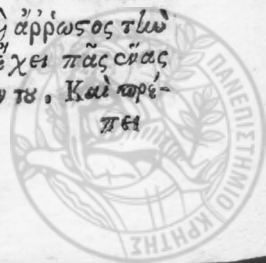 ἄῤῥωστος τὴν
χει πᾶς ἕνας
του. Καὶ πρέ-
πει
ΠΑΝΕΠΙΣΤΗΜΙΟ ΚΡΗΤΗΣ